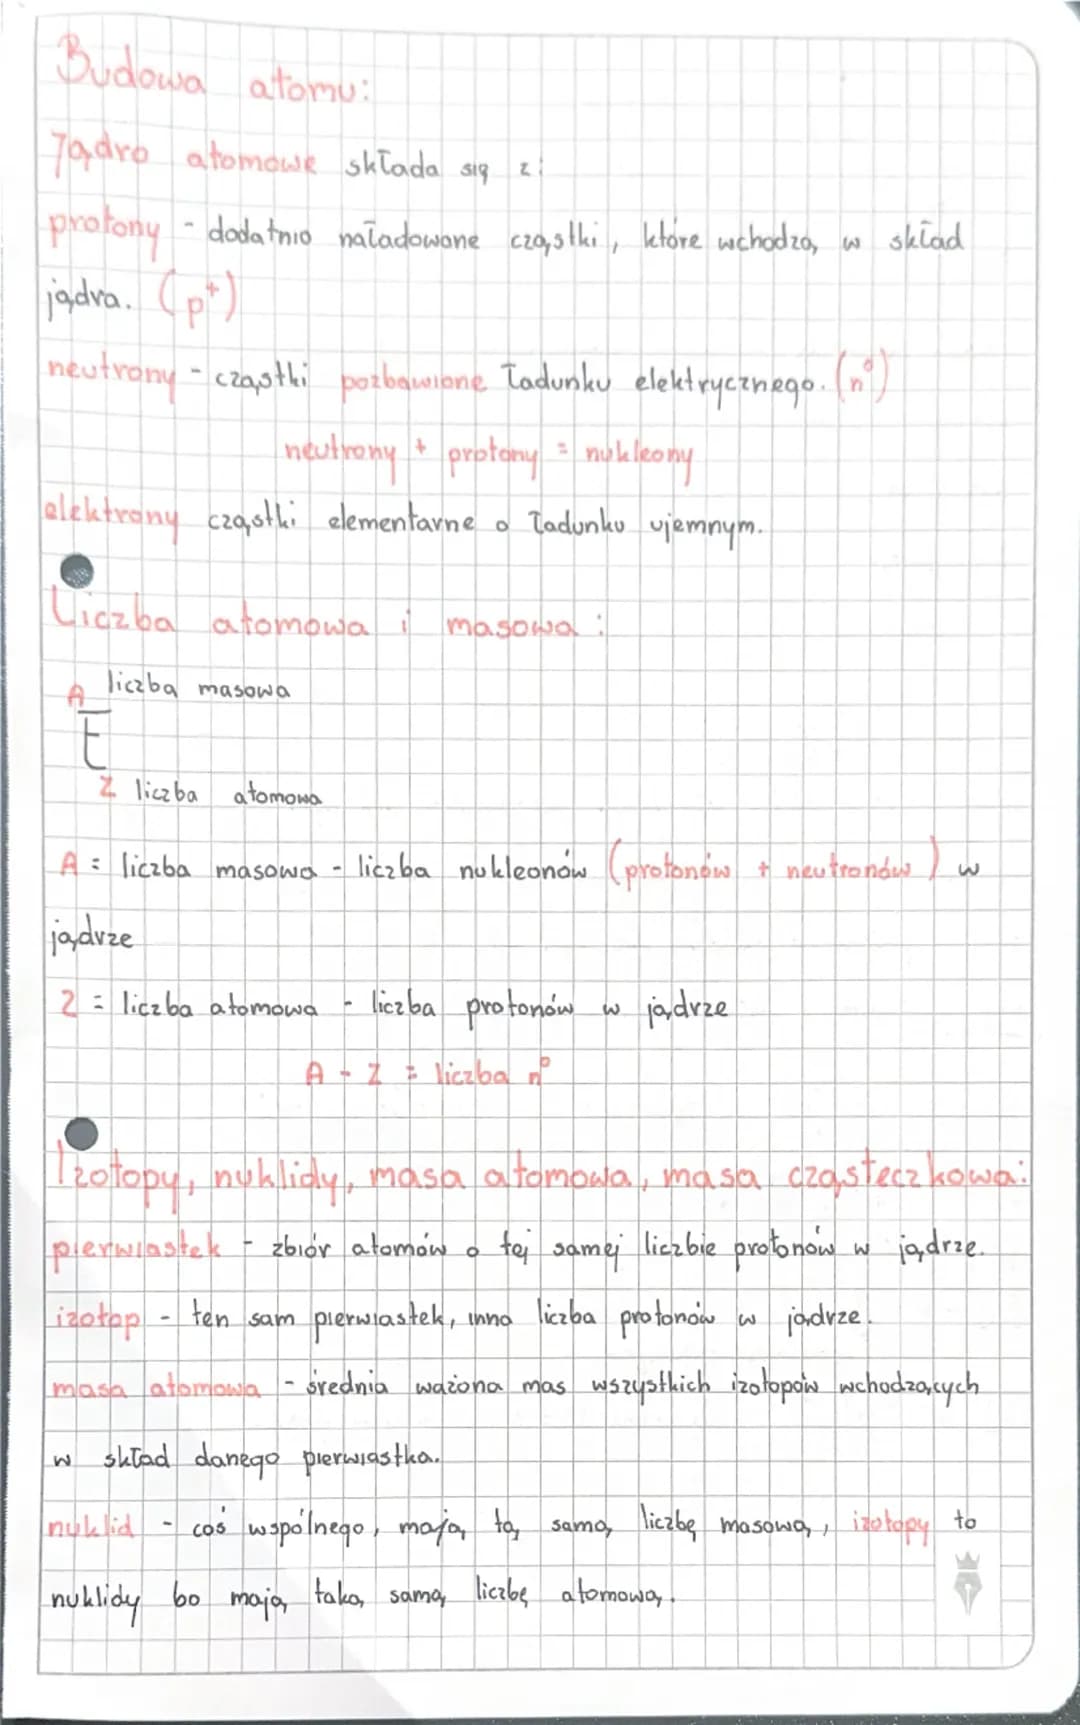 Budowa atomu:
Jądro atomowe składa się z:
protony - dodatnio naładowane cząstki, które wchodzą w skład
jądra. (p⁺)
neutrony - cząstki pozbawione ładunku elektrycznego. (n⁰)
neutrony + protony = nukleony
elektrony cząstki elementarne o ładunku ujemnym.
Liczba atomowa i masowa:
A liczba masowa
E
Z liczba atomowa
A = liczba masowa - liczba nukleonów (protonów + neutronów) w
jądrze
Z = liczba atomowa - liczba protonów w jądrze
A - Z = liczba n⁰
Izotopy, nuklidy, masa atomowa, masa cząsteczkowa:
pierwiastek - zbiór atomów o tej samej liczbie protonów w jądrze.
izotop - ten sam pierwiastek, inna liczba protonów w jądrze.
masa atomowa - średnia ważona mas wszystkich izotopów wchodzących
w skład danego pierwiastka.
nuklid - coś wspólnego, mają tą samą liczbę masową, izotopy to
nuklidy bo mają taką samą liczbę atomową.